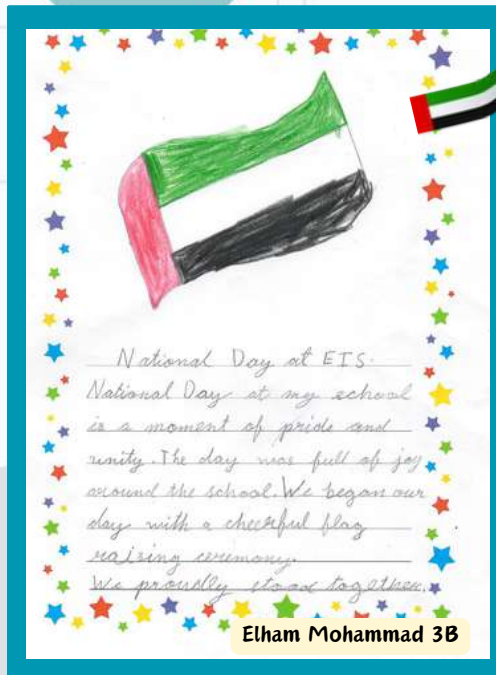 National Day at EIS.
National Day at my school
is a moment of pride and
unity. The day was full of joy
around the school. We began our
day with a cheerful flag
raising ceremony.
We proudly stood together.
Elham Mohammad 3B